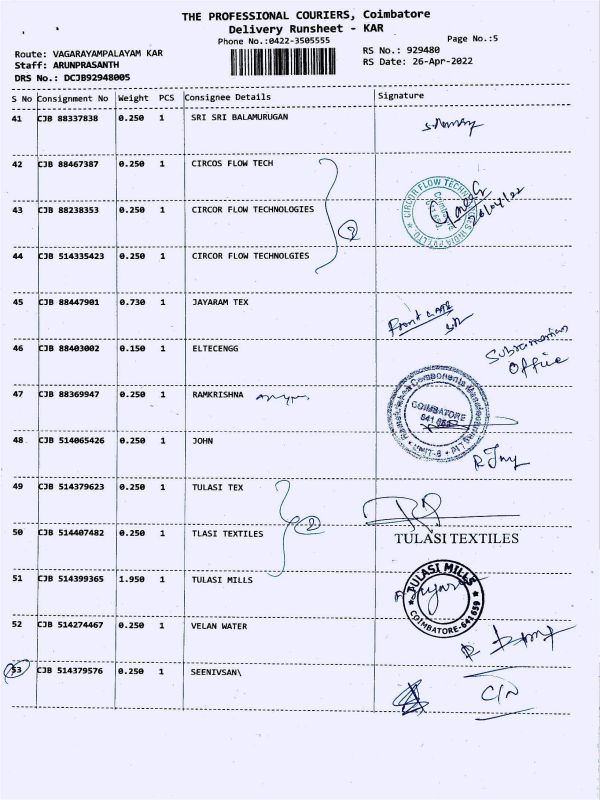 THE PROFESSIONAL COURIERS, Coimbatore
Delivery Runsheet - KAR
Phone No.:0422-3505555
Page No.:5
Route: VAGARAYAMPALAYAM KAR
RS No.: 929480
Staff: ARUNPRASANTH
RS Date: 26-Apr-2022
DRS No.: DCJB92948005
S No Consignment No Weight PCS Consignee Details Signature
41 CJB 88337838 0.250 1 SRI SRI BALAMURUGAN
42 CJB 88467387 0.250 1 CIRCOS FLOW TECH
43 CJB 88238353 0.250 1 CIRCOR FLOW TECHNOLOGIES
2
26/04/22
44 CJB 514335423 0.250 1 CIRCOR FLOW TECHNOLGIES
45 CJB 88447901 0.730 1 JAYARAM TEX
Front Gate
46 CJB 88403002 0.150 1 ELTECENGG
Subramanian
Office
47 CJB 88369947 0.250 1 RAMKRISHNA
COIMBATORE
48 CJB 514065426 0.250 1 JOHN
49 CJB 514379623 0.250 1 TULASI TEX
2
50 CJB 514407482 0.250 1 TLASI TEXTILES
TULASI TEXTILES
51 CJB 514399365 1.950 1 TULASI MILLS
TULASI MILLS
COIMBATORE-641659
52 CJB 514274467 0.250 1 VELAN WATER
53 CJB 514379576 0.250 1 SEENIVSAN\
C/N